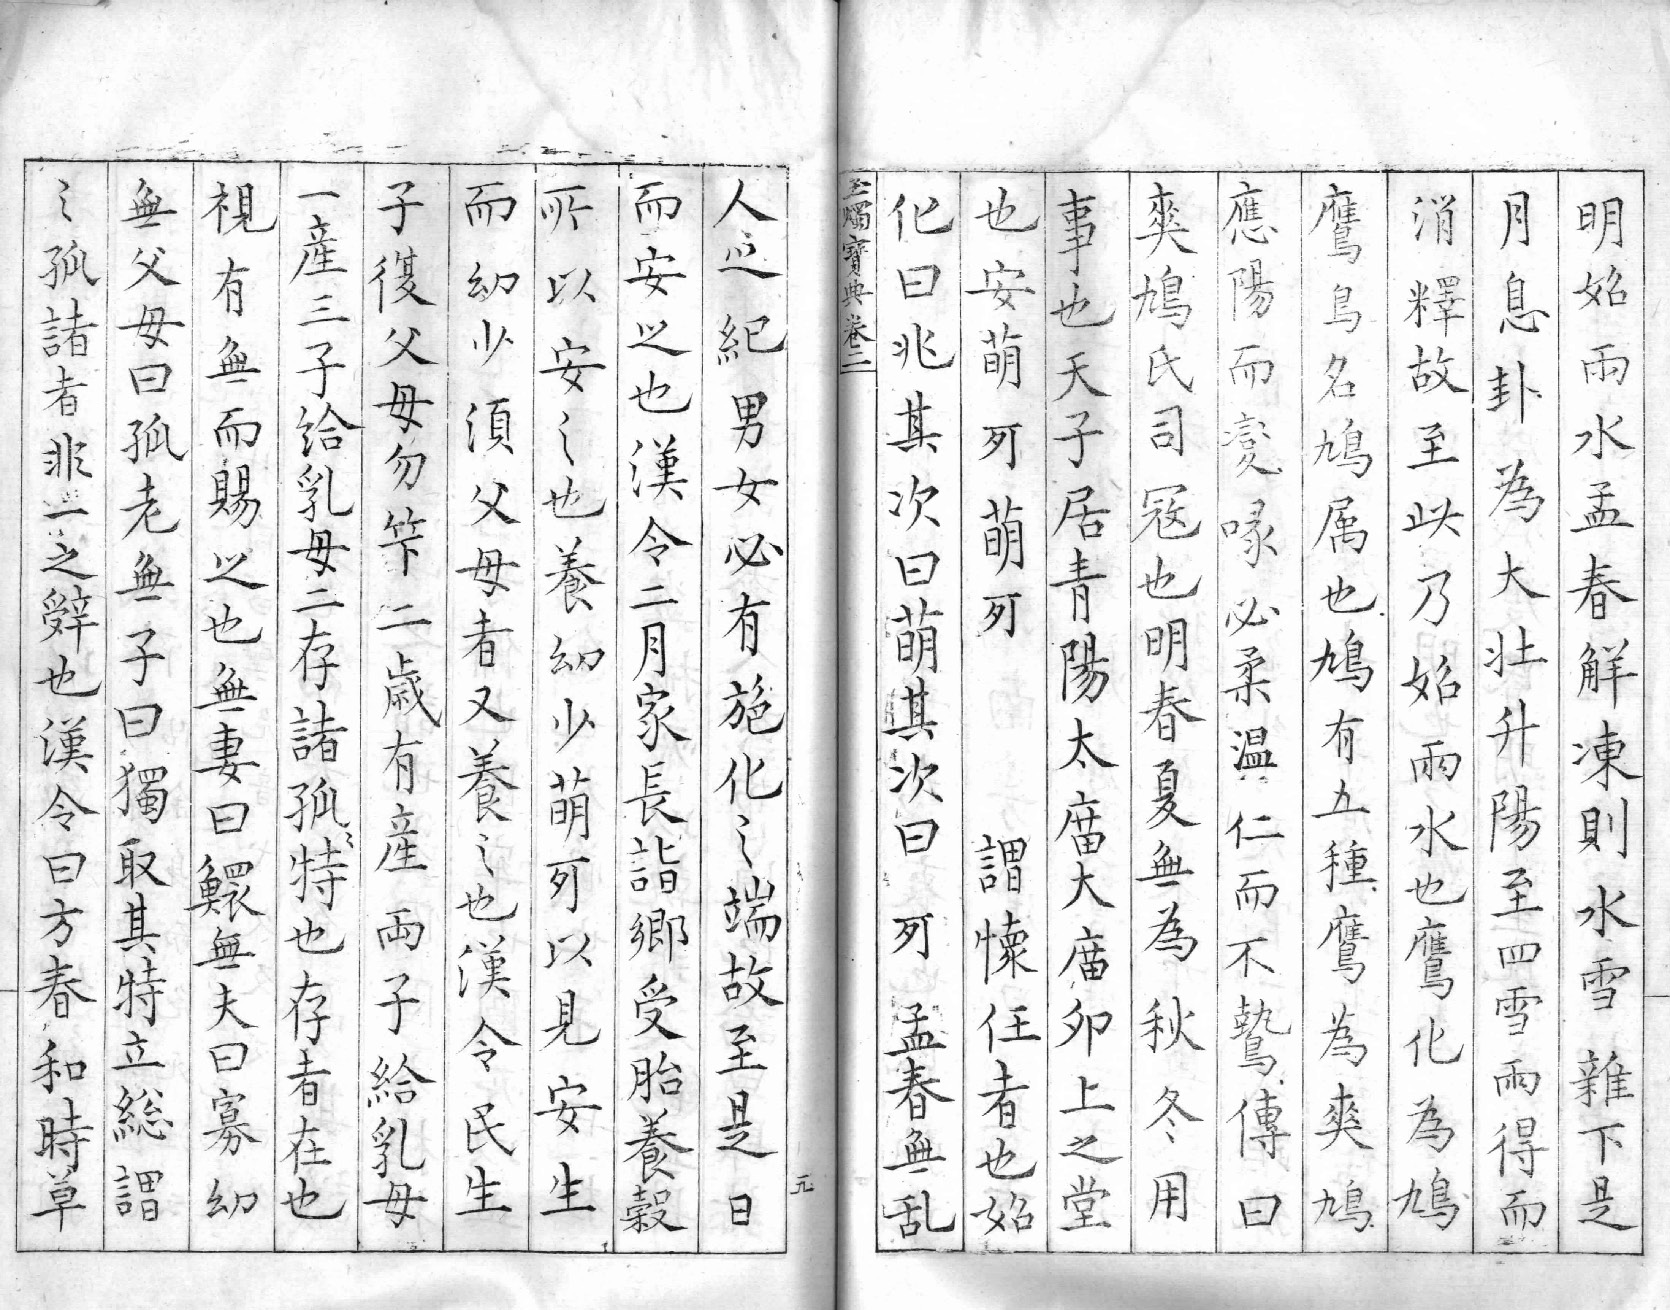 明始雨水孟春解凍則水雪雜下是
月息卦為大壮升陽至四雪雨得而
消釋故至此乃始雨水也鷹化為鳩
鷹鳥名鳩属也鳩有五種鷹為爽鳩
應陽而變喙必柔温仁而不鷙傳曰
爽鳩氏司冦也明春夏無為秋冬用
事也天子居青陽太庿大庿卯上之堂
也安萌牙萌牙謂懷任者也始
化曰兆其次曰萌其次曰牙孟春無乱
玉燭寳典卷二
人之紀男女必有施化之端故至是日
而安之也漢令二月家長詣郷受胎養穀
所以安之也養幼少萌牙以見安生
而幼少湏父母者又養之也漢令民生
子復父母勿笇二歳有産両子給乳母
一産三子給乳母二存諸孤特也存者在也
視有無而賜之也無妻曰鰥無夫曰寡幼
無父母曰孤老無子曰獨取其特立総謂
之孤諸者非一之辤也漢令曰方春和時草